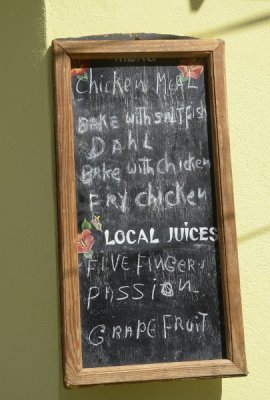 MENU
Chicken MEAL
BAKE with SALTFISH
DAHL
BAKE with chicken
FRY chicken
LOCAL JUICES
FIVE FINGERS
PASSION
GRAPEFRUIT